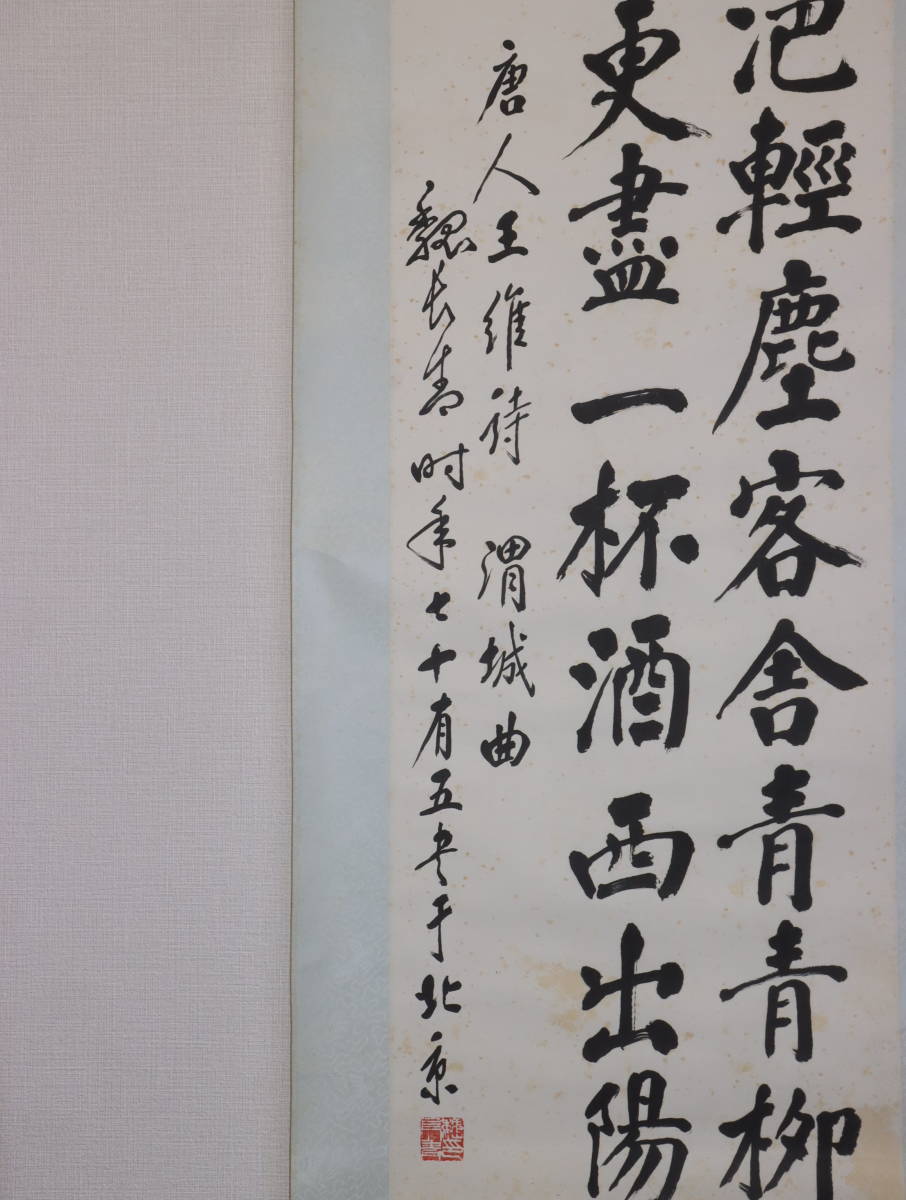 浥輕塵客舍青青柳
更盡一杯酒西出陽
唐人王維诗 渭城曲
魏长青时年七十有五书于北京